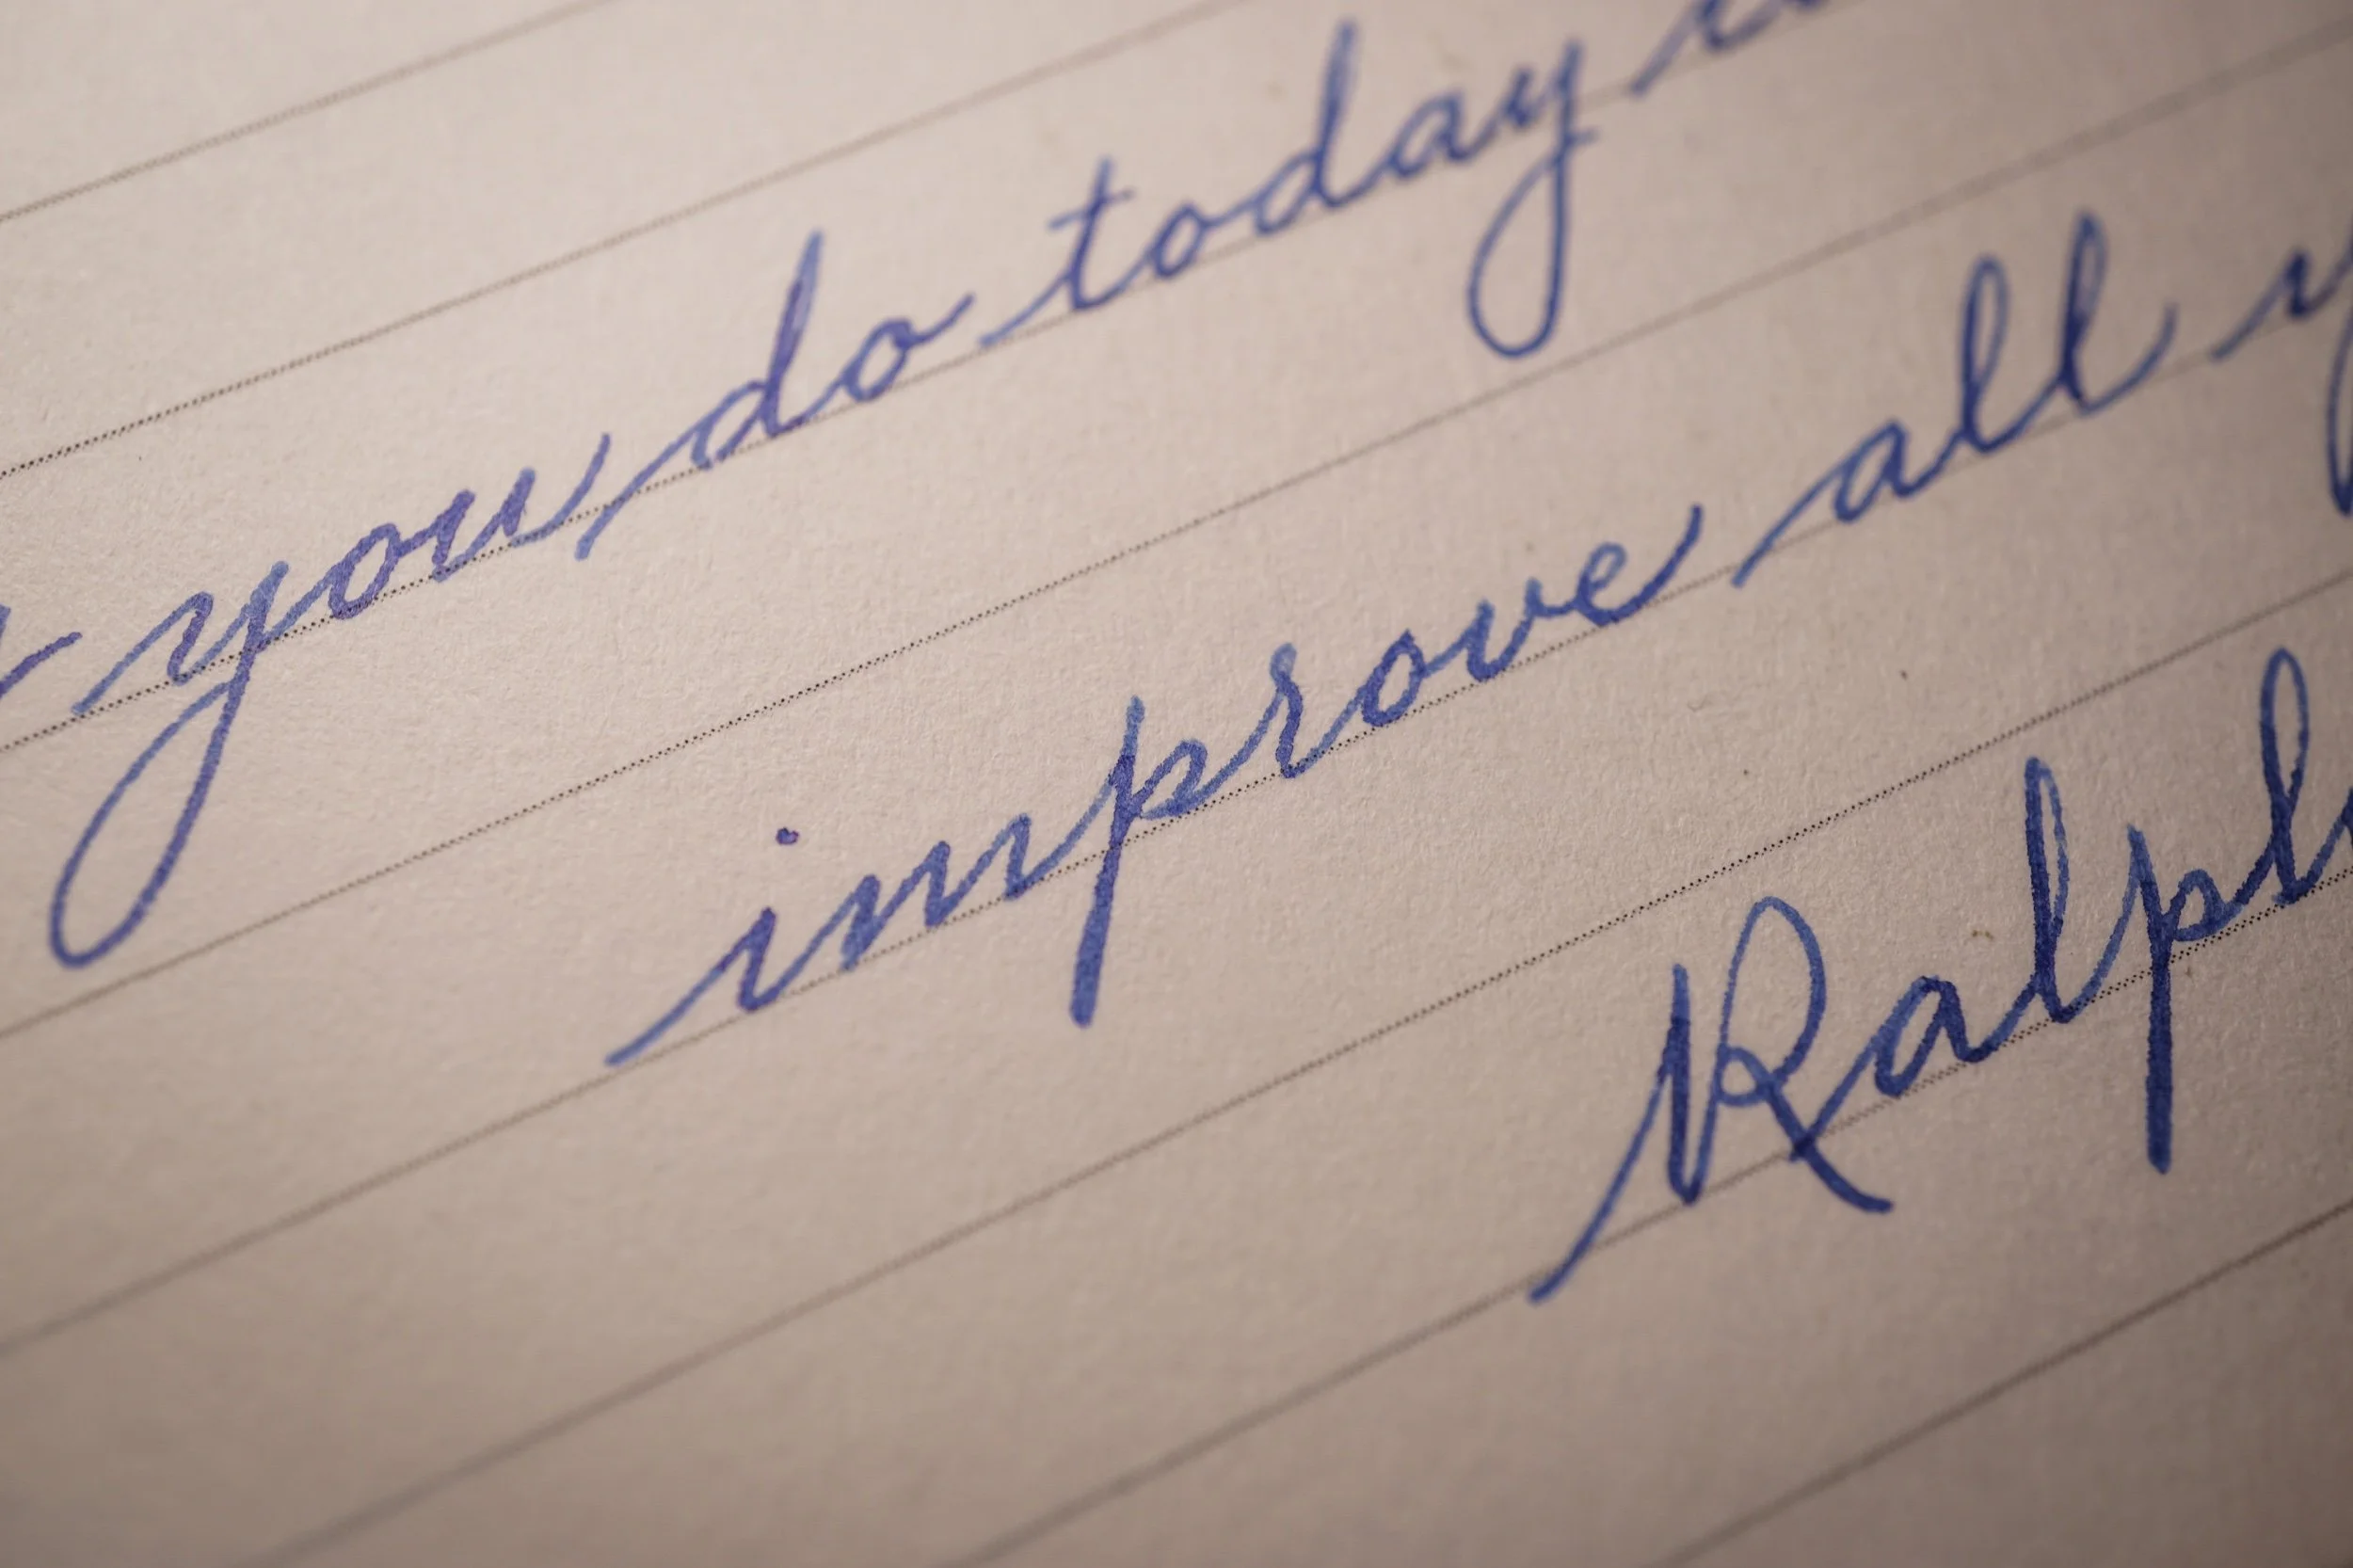 you do today
improve all
Ralph